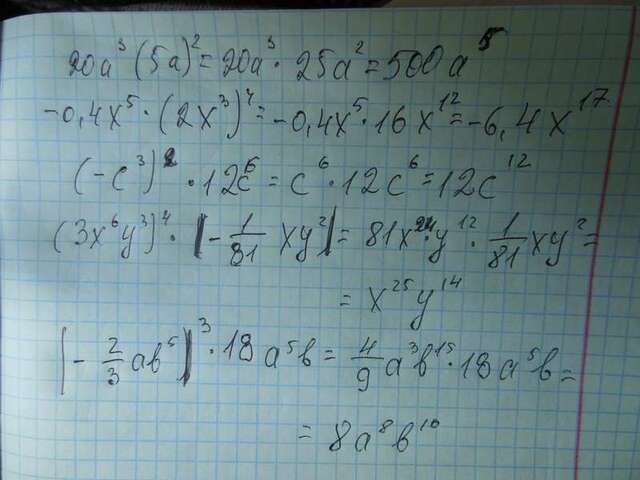 20a³ (5a)² = 20a³ · 25a² = 500a⁵
-0,4x⁵ · (2x³)⁴ = -0,4x⁵ · 16x¹² = -6,4x¹⁷
(-c³)² · 12c⁶ = c⁶ · 12c⁶ = 12c¹²
(3x⁶y³)⁴ · |-1/81 xy²| = 81x²⁴y¹² · 1/81 xy² =
= x²⁵y¹⁴
|-2/3 ab⁵|³ · 18a⁵b = 4/9 a³b¹⁵ · 18a⁵b =
= 8a⁸b¹⁶